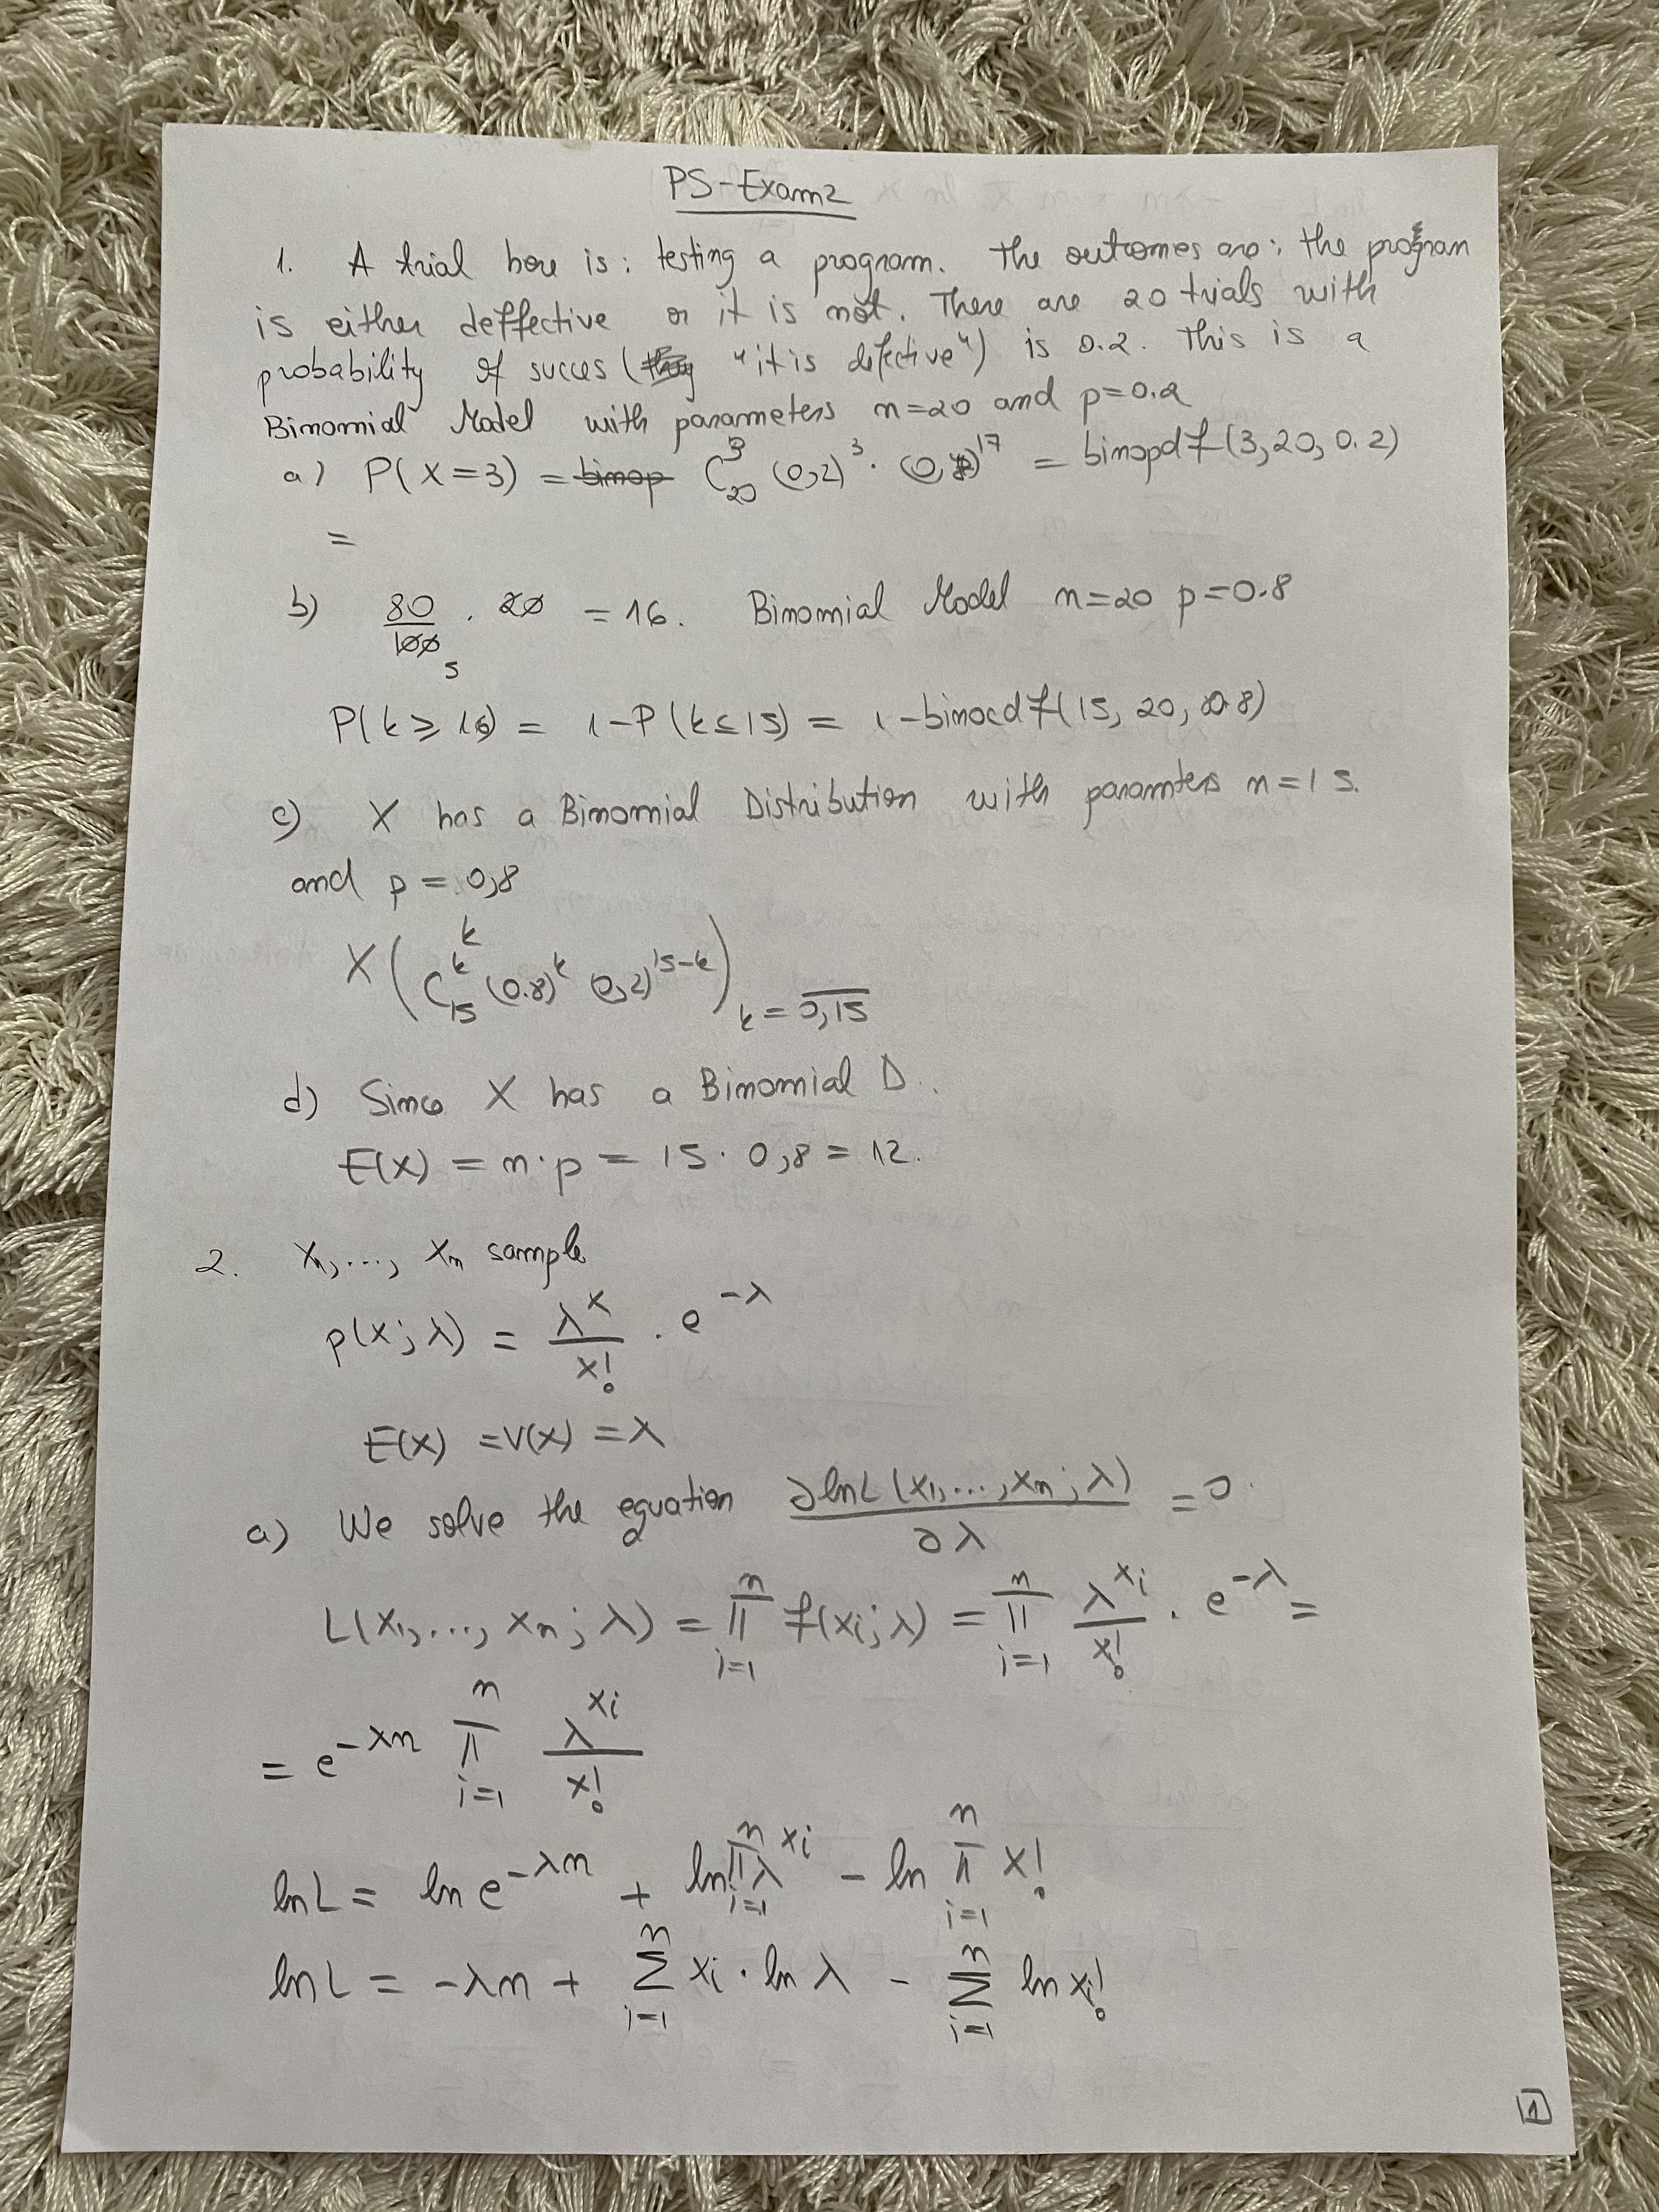 PS-Exam2
1. A trial here is: testing a program. The outcomes are: the program
is either deffective or it is not. There are 20 trials with
probability of succes ( "it is defective") is 0.2. This is a
Binomial Model with parameters n=20 and p=0.2
a) P(X=3) = binop C_20^3 (0,2)^3 · (0,8)^17 = binopdf(3,20,0.2)
=
b) 80/100 · 20 = 16. Binomial Model n=20 p=0.8
5
P(k ≥ 16) = 1-P(k ≤ 15) = 1-binocdf(15, 20, 0.8)
c) X has a Binomial Distribution with paramters n=15.
and p = 0,8
X ( k / C_15^k (0.8)^k (0,2)^(15-k) ) k=0,15
d) Since X has a Binomial D.
E(X) = n·p = 15 · 0,8 = 12.
2. X1,..., Xn sample
p(x; λ) = λ^x / x! · e^-λ
E(X) = V(X) = λ
a) We solve the equation ∂lnL(X1,...,Xn; λ) / ∂λ = 0.
L(X1,..., Xn; λ) = ∏ i=1 n f(xi; λ) = ∏ i=1 n λ^xi / x! · e^-λ =
= e^-λn ∏ i=1 n λ^xi / x!
lnL = ln e^-λn + ln ∏ i=1 n λ^xi - ln ∏ i=1 n x!
lnL = -λn + ∑ i=1 n xi · ln λ - ∑ i=1 n ln xi!
1